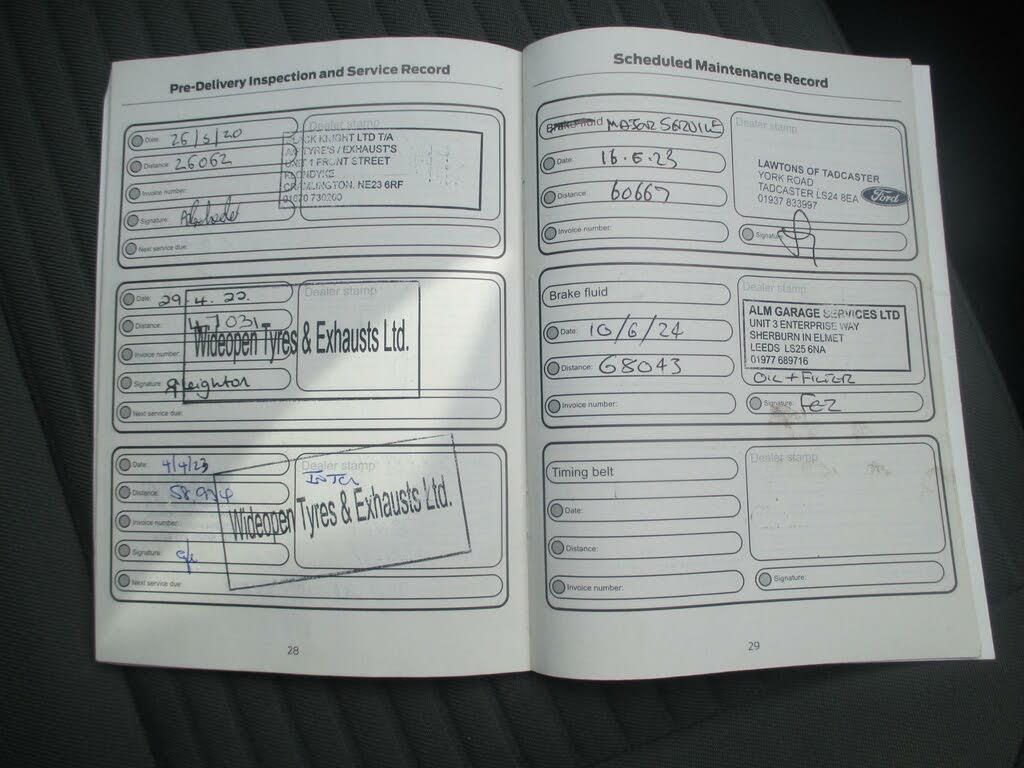 Pre-Delivery Inspection and Service Record
Date: 26/5/20
Dealer stamp
Distance: 26062
BLACK KNIGHT LTD T/A
TYRE'S / EXHAUST'S
UNIT 1 FRONT STREET
KLONDYKE
CRAMLINGTON. NE23 6RF
Invoice number:
Signature:
Next service due:
Date: 29.4.22.
Dealer stamp
Distance: 47031
Wideopen Tyres & Exhausts Ltd.
Invoice number:
Signature:
Next service due:
Date: 4/4/23
Dealer stamp
Distance:
Wideopen Tyres & Exhausts Ltd.
Invoice number:
Signature:
Next service due:
28
Scheduled Maintenance Record
Brake fluid MAJOR SERVICE
Dealer stamp
Date: 16.5.23
Distance: 60667
LAWTONS OF TADCASTER
YORK ROAD
TADCASTER LS24 8EA
01937 833997
Ford
Invoice number:
Signature:
Brake fluid
Dealer stamp
Date: 10/6/24
Distance: 68043
ALM GARAGE SERVICES LTD
UNIT 3 ENTERPRISE WAY
SHERBURN IN ELMET
LEEDS LS25 6NA
01977 689716
OIL + FILTER
Invoice number:
Signature: FEZ
Timing belt
Dealer stamp
Date:
Distance:
Invoice number:
Signature:
29